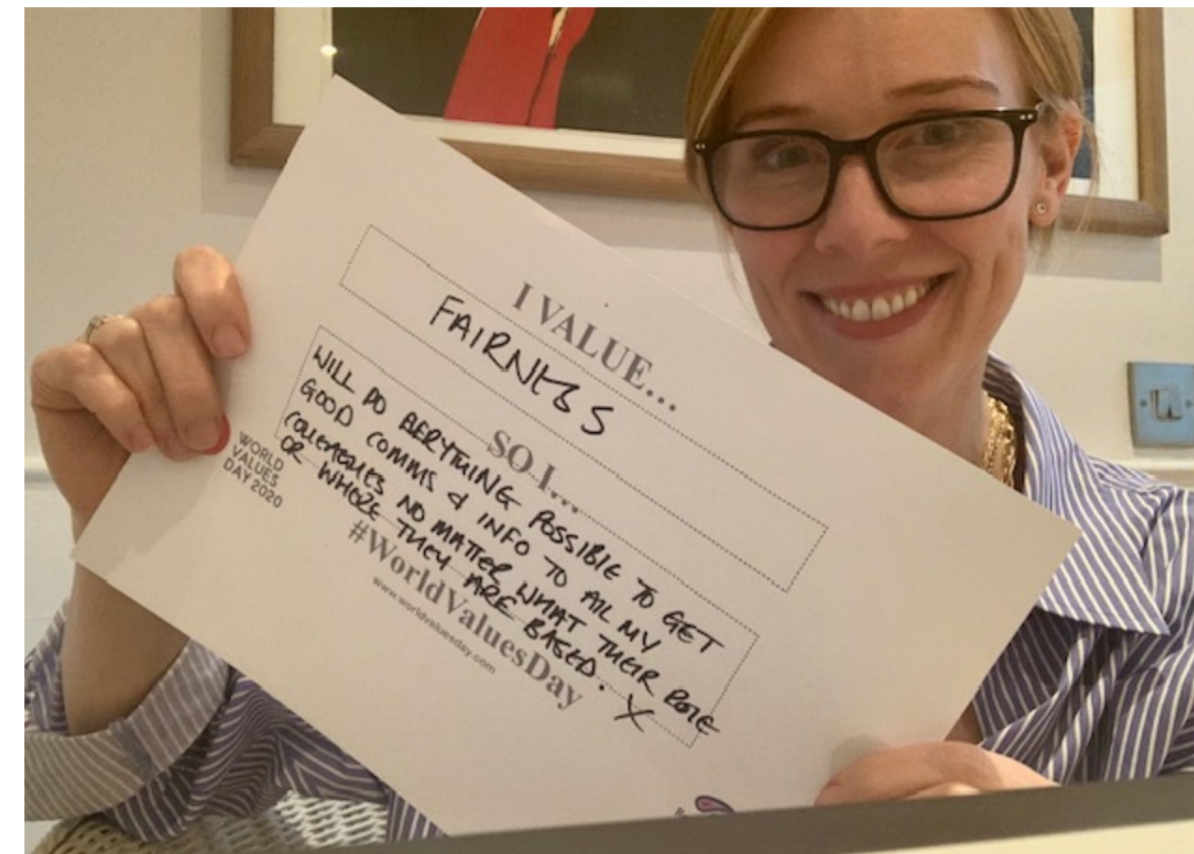 I VALUE...
FAIRNESS
SO I...
WILL DO EVERYTHING POSSIBLE TO GET
GOOD COMMS & INFO TO ALL MY
COLLEAGUES NO MATTER WHAT THEIR ROLE
OR WHERE THEY ARE BASED. X
WORLD
VALUES
DAY 2020
#WorldValuesDay
www.worldvaluesday.com